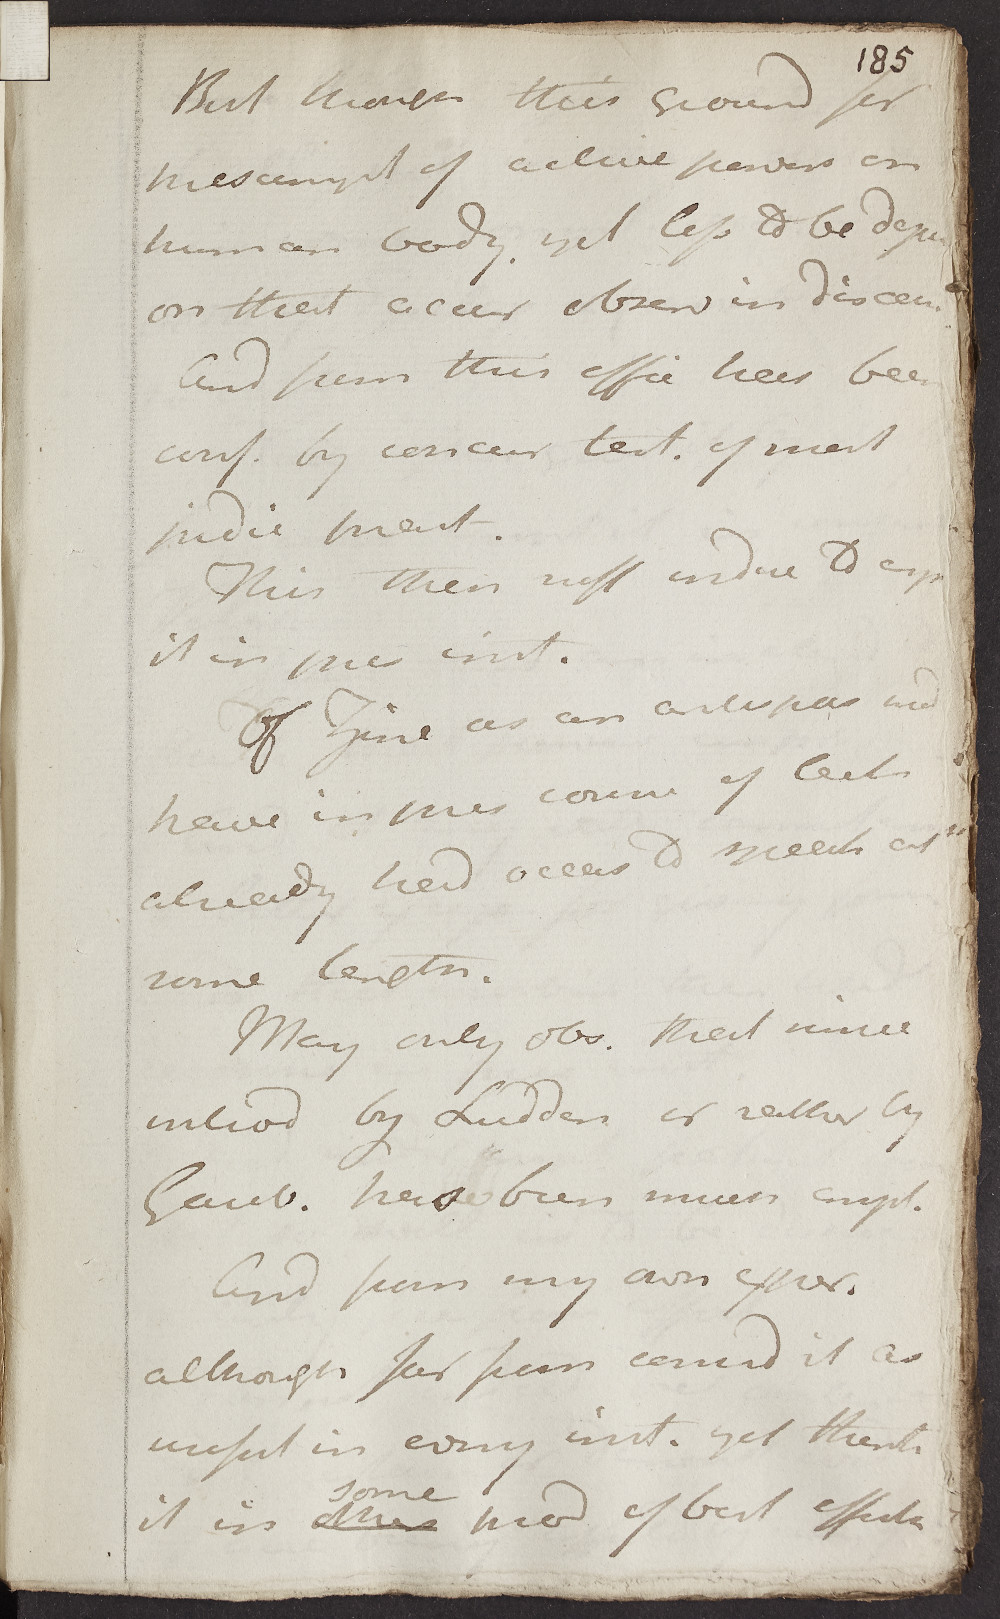 185
But though this ground for
presumpt of active powers on
human body. yet less to be depen
on that accur observ in diseas.
And from this effic has been
conf. by concur test. of most
judic pract.
This then suff induc to emp
it in pres inst.
Of Zinc as an antispas med
have in pres course of lect
already had occas to speak at
some length.
May only obs. that since
introd by Ludden or rather by
Gaub. has been much empl.
And from my own exper.
although far from consid it as
useful in every inst. yet think
it in some prod of best effects